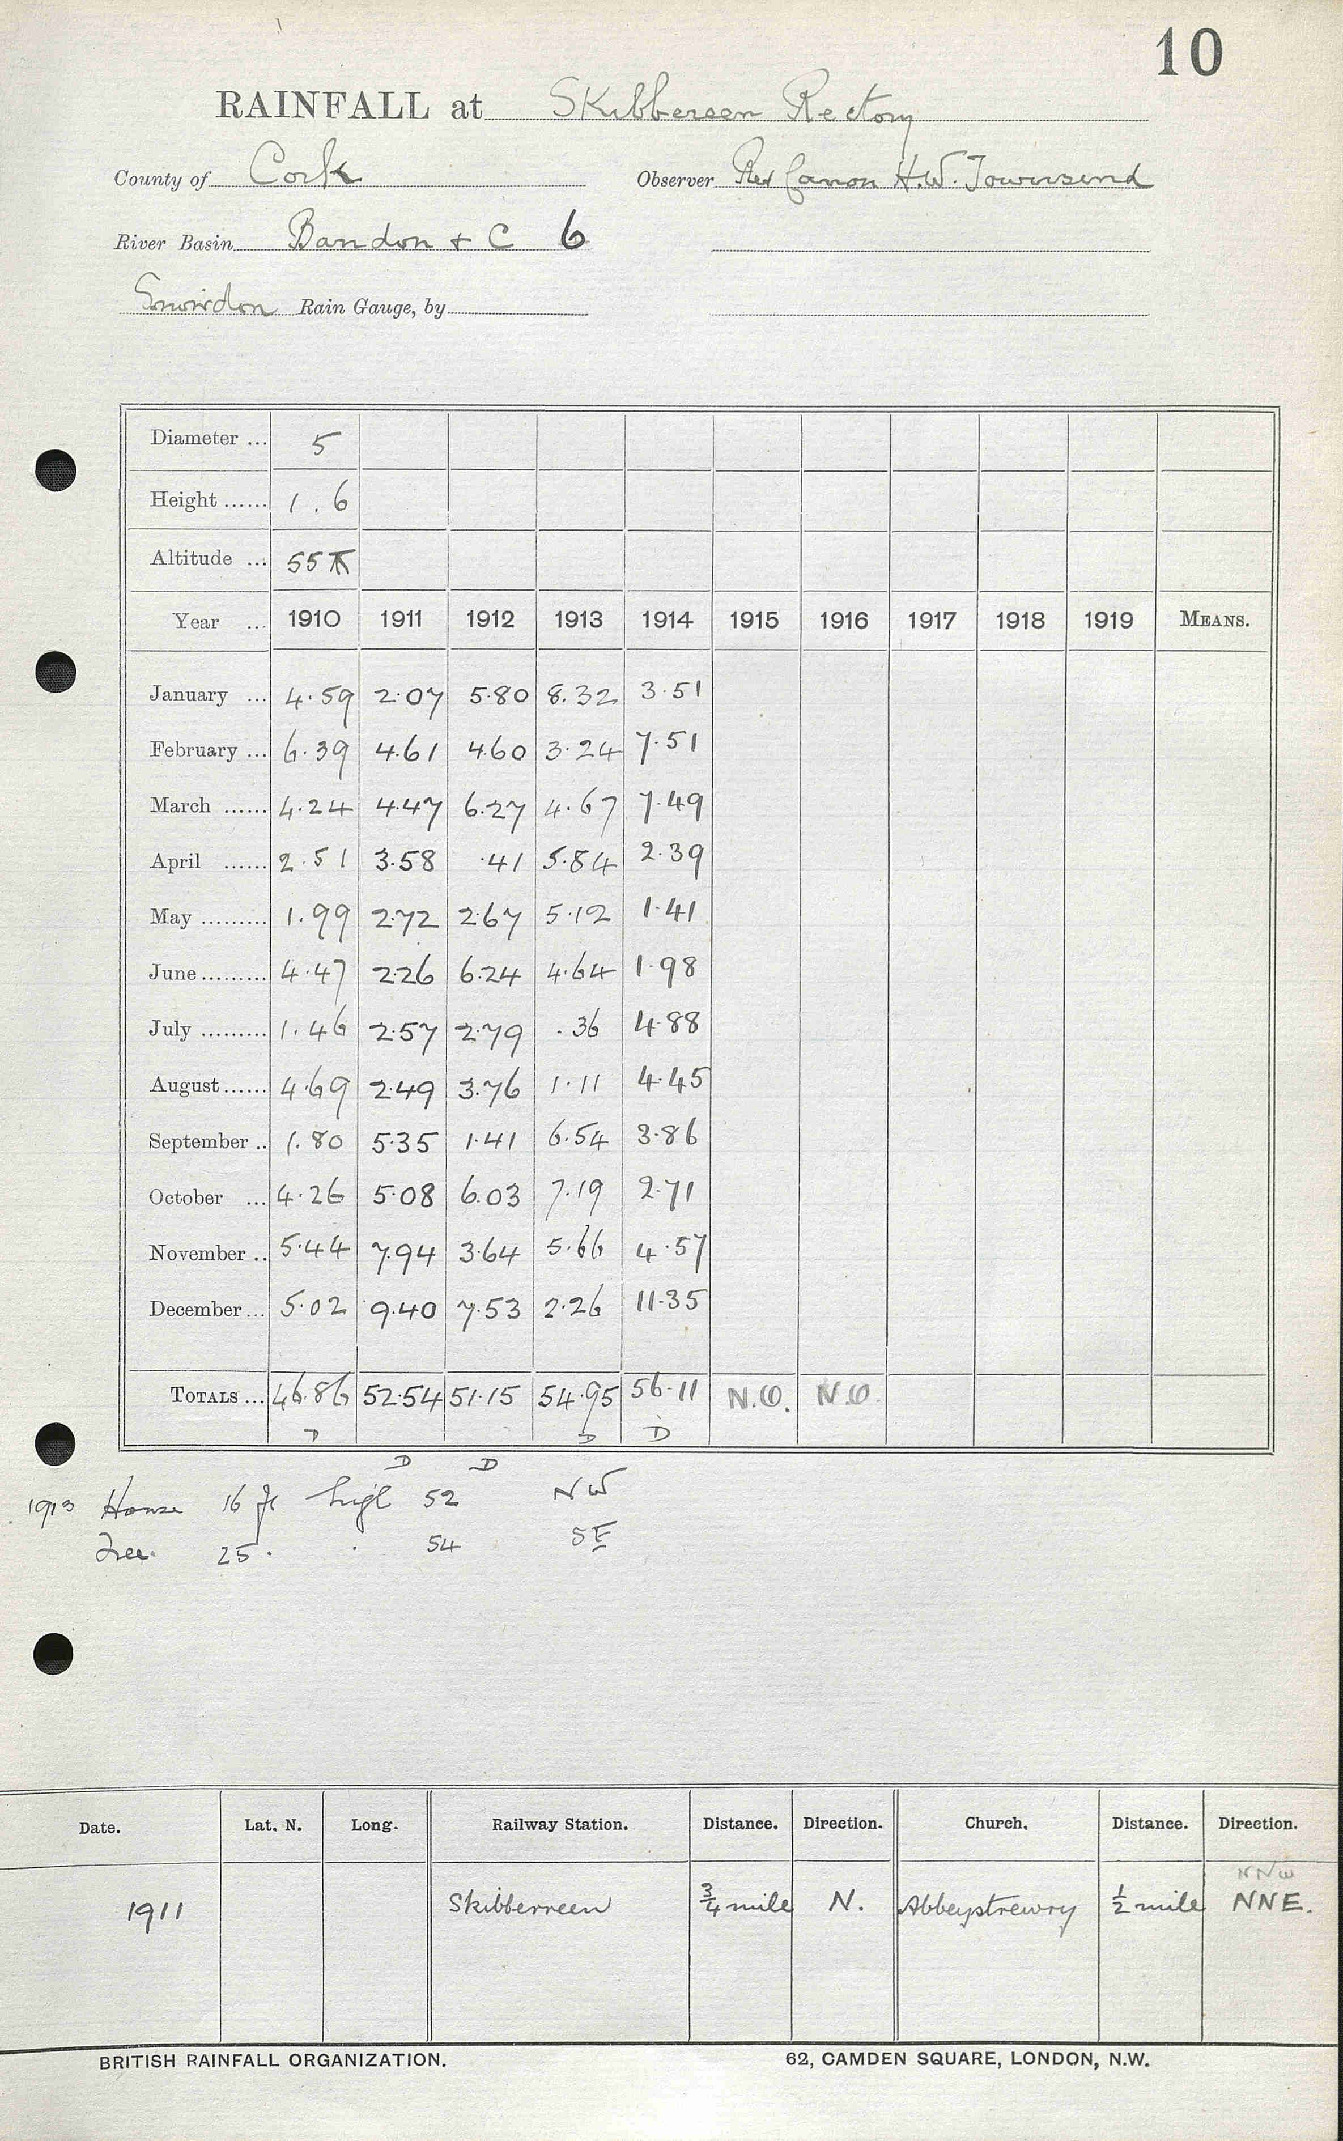 10
RAINFALL at Skibbereen Rectory
County of Cork Observer Rev Canon H.W. Townsend
River Basin Bandon + C 6
Snowdon Rain Gauge, by
Diameter ... 5
Height ...... 1 . 6
Altitude ... 55
Year ... 1910 1911 1912 1913 1914 1915 1916 1917 1918 1919 MEANS.
January ... 4.59 2.07 5.80 8.32 3.51
February ... 6.39 4.61 4.60 3.24 7.51
March ...... 4.24 4.47 6.27 4.67 7.49
April ...... 2.51 3.58 .41 5.84 2.39
May ......... 1.99 2.72 2.67 5.12 1.41
June ......... 4.47 2.26 6.24 4.64 1.98
July ......... 1.46 2.57 2.79 .36 4.88
August ...... 4.69 2.49 3.76 1.11 4.45
September .. 1.80 5.35 1.41 6.54 3.86
October ... 4.26 5.08 6.03 7.19 2.71
November .. 5.44 7.94 3.64 5.66 4.57
December ... 5.02 9.40 7.53 2.26 11.35
TOTALS ... 46.86 52.54 51.15 54.95 56.11 N.O. N.O.
D D D
D D
1913 House 16 ft high 52 NW
Tree 25 . . 54 SE
Date. Lat. N. Long. Railway Station. Distance. Direction. Church. Distance. Direction.
NNW
1911 Skibberreen 3/4 mile N. Abbeystrewry 1/2 mile NNE.
BRITISH RAINFALL ORGANIZATION. 62, CAMDEN SQUARE, LONDON, N.W.